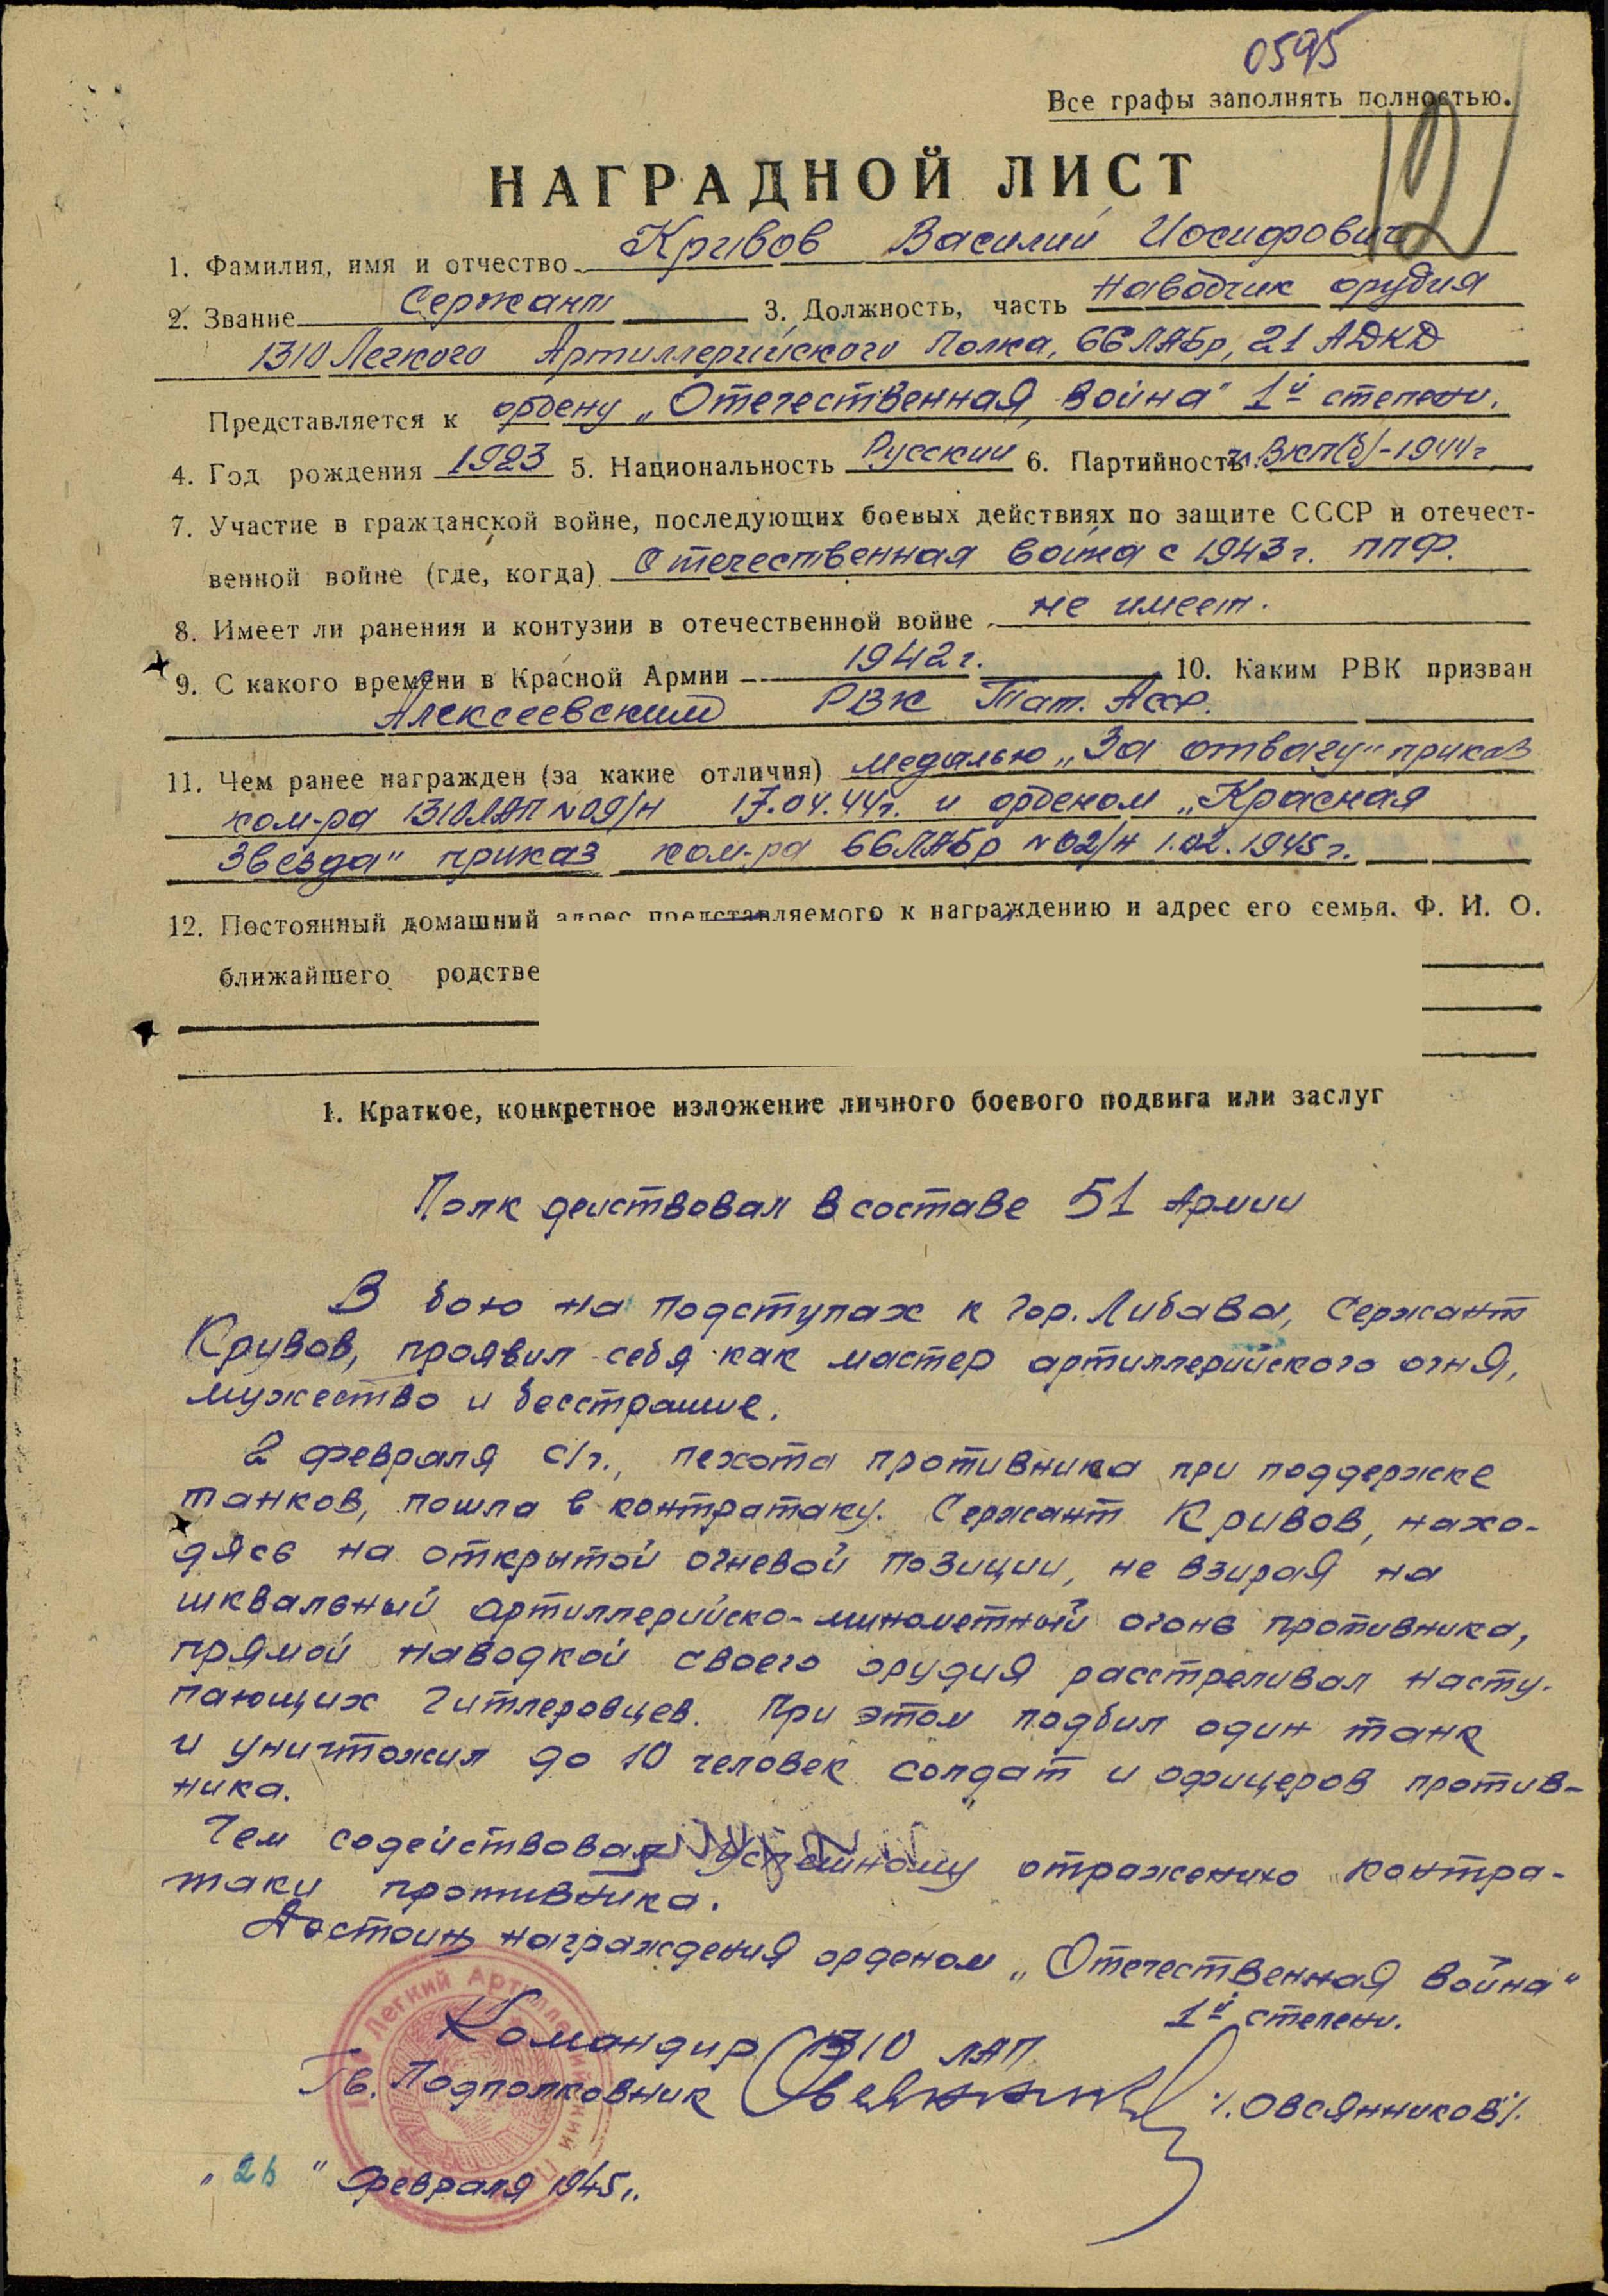 0595
Все графы заполнять полностью.
12
НАГРАДНОЙ ЛИСТ
1. Фамилия, имя и отчество Кривов Василий Иосифович
2. Звание Сержант 3. Должность, часть Наводчик орудия
1310 Легкого Артиллерийского Полка, 66 ЛАБр, 21 АДКД
Представляется к ордену „Отечественная война" 1й степени.
4. Год рождения 1923 5. Национальность Русский 6. Партийность чл. ВКП(б)-1944г
7. Участие в гражданской войне, последующих боевых действиях по защите СССР и отечест-
венной войне (где, когда) Отечественная война с 1943г. ППФ.
8. Имеет ли ранения и контузии в отечественной войне не имеет.
9. С какого времени в Красной Армии 1942г. 10. Каким РВК призван
Алексеевским РВК Тат. Асср.
11. Чем ранее награжден (за какие отличия) медалью „За отвагу" приказ
ком-ра 1310 ЛАП №09/Н 17.04.44г. и орденом „Красная
Звезда" приказ ком-ра 66 ЛАБр №02/Н 1.02.1945г.
12. Постоянный домашний адрес представляемого к награждению и адрес его семьи. Ф. И. О.
ближайшего родстве
1. Краткое, конкретное изложение личного боевого подвига или заслуг
Полк действовал в составе 51 Армии
В бою на подступах к гор. Либава, Сержант
Кривов, проявил себя как мастер артиллерийского огня,
мужество и бесстрашие.
2 февраля с/г., пехота противника при поддержке
танков, пошла в контратаку. Сержант Кривов, нахо-
дясь на открытой огневой позиции, не взирая на
шквальный артиллерийско-минометный огонь противника,
прямой наводкой своего орудия расстреливал насту-
пающих гитлеровцев. При этом подбил один танк
и уничтожил до 10 человек солдат и офицеров против-
ника.
Чем содействовал успешному отражению контра-
таки противника.
Достоин награждения орденом „Отечественная война"
1й степени.
Командир 1310 ЛАП
Гв. Подполковник /.Овсянников/.
„ " февраля 1945г.
Легкий Артиллерийский